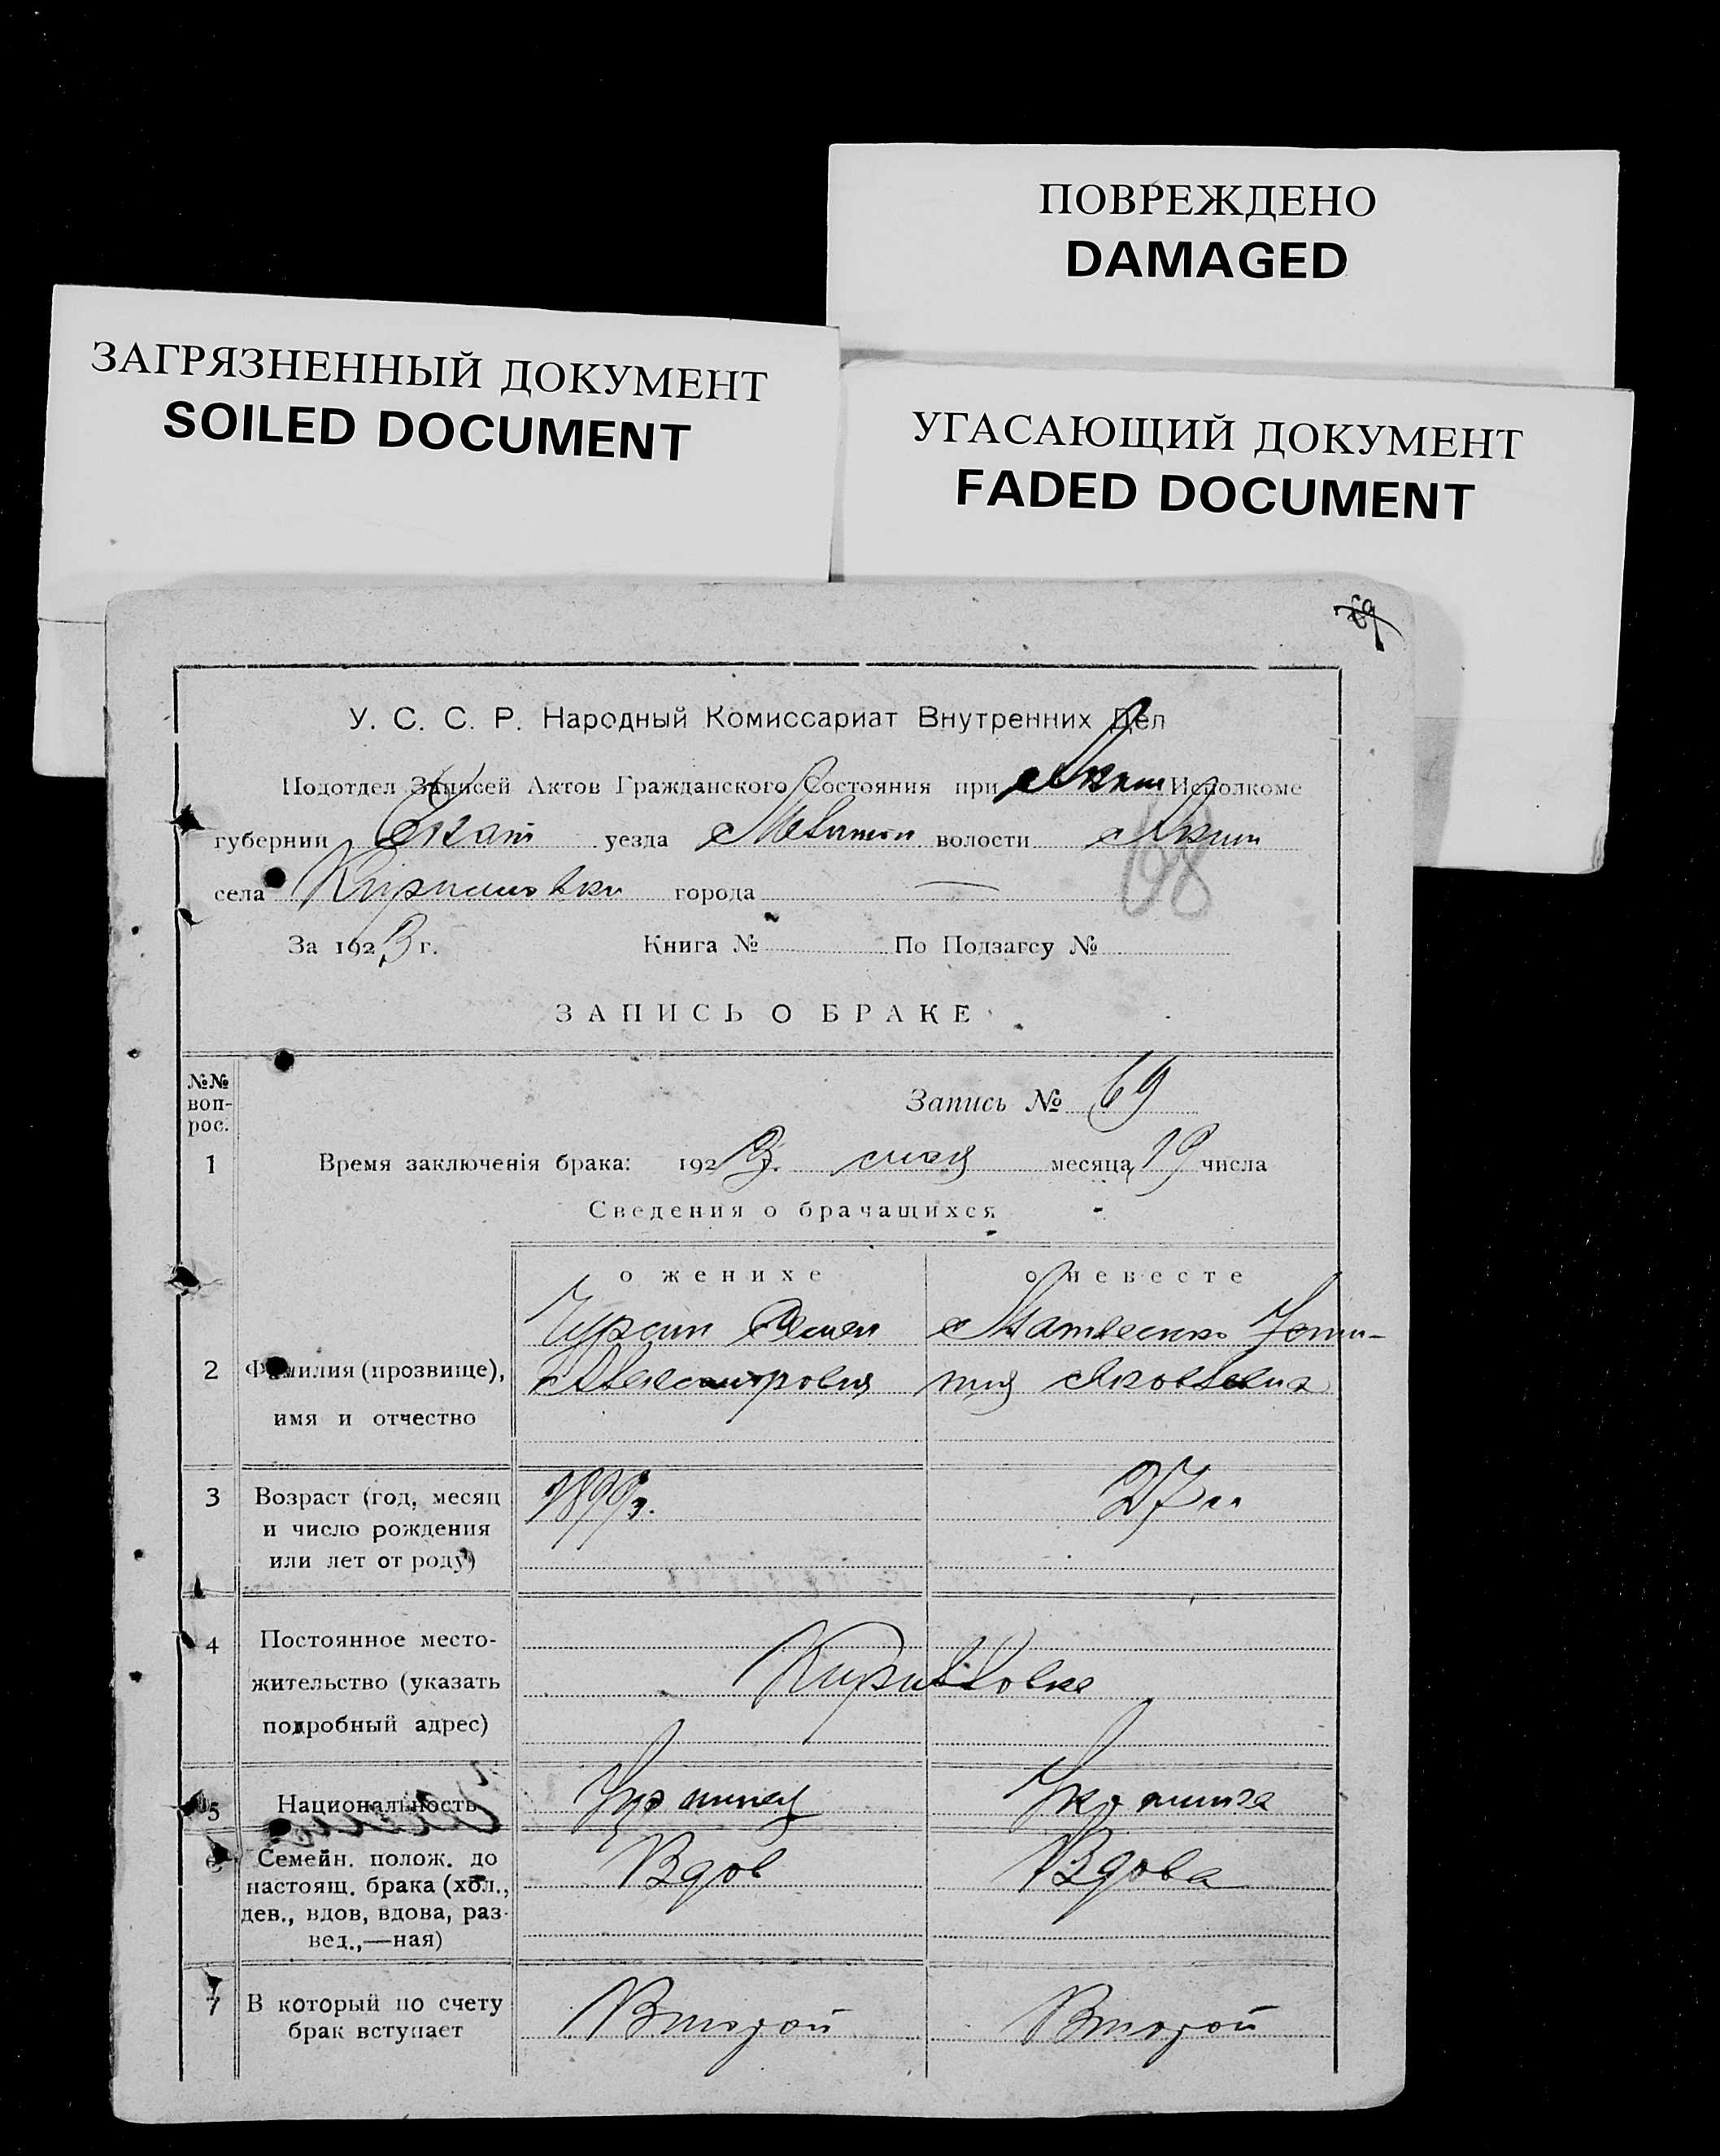 ПОВРЕЖДЕНО
DAMAGED
ЗАГРЯЗНЕННЫЙ ДОКУМЕНТ
SOILED DOCUMENT
УГАСАЮЩИЙ ДОКУМЕНТ
FADED DOCUMENT
69
У. С. С. Р. Народный Комиссариат Внутренних Дел
Подотдел Записей Актов Гражданского Состояния при Аким Исполкоме
губернии Екат уезда Мелитоп волости Аким
68
села Кирилловки города —
За 1923 г. Книга № По Подзагсу №
ЗАПИСЬ О БРАКЕ
№№ воп-рос.
Запись № 69
1 Время заключенія брака: 1923. мая месяца 19 числа
Сведения о брачащихся
о женихе о невесте
Чурсин Семен Матвеенко Усти-
2 Фамилия (прозвище), имя и отчество
ния Яковлевна
3 Возраст (год, месяц и число рождения или лет от роду)
1899г. 27 л
4 Постоянное место-жительство (указать подробный адрес)
Кирилловка
5 Национальность
Украинец Украинка
6 Семейн. полож. до настоящ. брака (хол., дев., вдов, вдова, раз-вед.,—ная)
Вдов Вдова
7 В который по счету брак вступает
Второй Второй